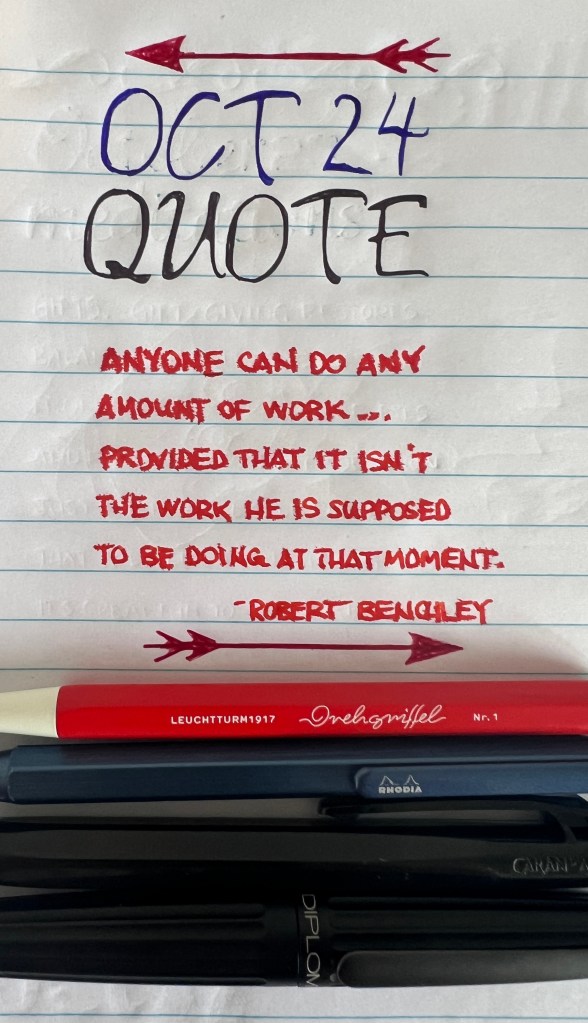 OCT 24
QUOTE
ANYONE CAN DO ANY
AMOUNT OF WORK...
PROVIDED THAT IT ISN'T
THE WORK HE IS SUPPOSED
TO BE DOING AT THAT MOMENT.
-ROBERT BENCHLEY
LEUCHTTURM1917 Drehgriffel Nr. 1
RHODIA
CARAN D'A
DIPLOM